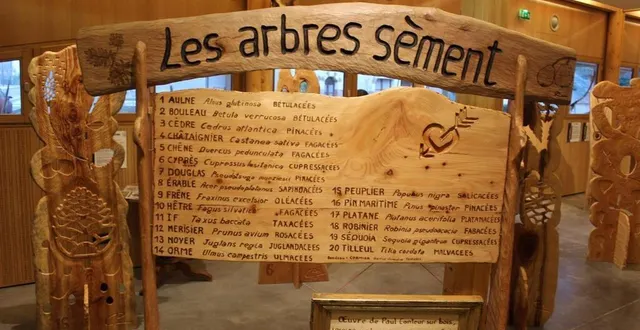 Les arbres sèment
1 AULNE Alnus glutinosa BÉTULACÉES
2 BOULEAU Betula verrucosa BÉTULACÉES
3 CÈDRE Cedrus atlantica PINACÉES
4 CHÂTAIGNIER Castanea sativa FAGACÉES
5 CHÊNE Quercus pedunculata FAGACÉES
6 CYPRÈS Cupressus lusitanica CUPRESSACÉES
7 DOUGLAS Pseudotsuga menziesii PINACÉES
8 ÉRABLE Acer pseudoplatanus SAPINDACÉES
9 FRÊNE Fraxinus excelsior OLÉACÉES
10 HÊTRE Fagus silvatica FAGACÉES
11 IF Taxus baccata TAXACÉES
12 MERISIER Prunus avium ROSACÉES
13 NOYER Juglans regia JUGLANDACÉES
14 ORME Ulmus campestris ULMACÉES
15 PEUPLIER Populus nigra SALICACÉES
16 PIN MARITIME Pinus pinaster PINACÉES
17 PLATANE Platanus acerifolia PLATANACÉES
18 ROBINIER Robinia pseudoacacia FABACÉES
19 SÉQUOIA Sequoia gigantea CUPRESSACÉES
20 TILLEUL Tilia cordata MALVACÉES
6
Œuvre de Paul sur bois